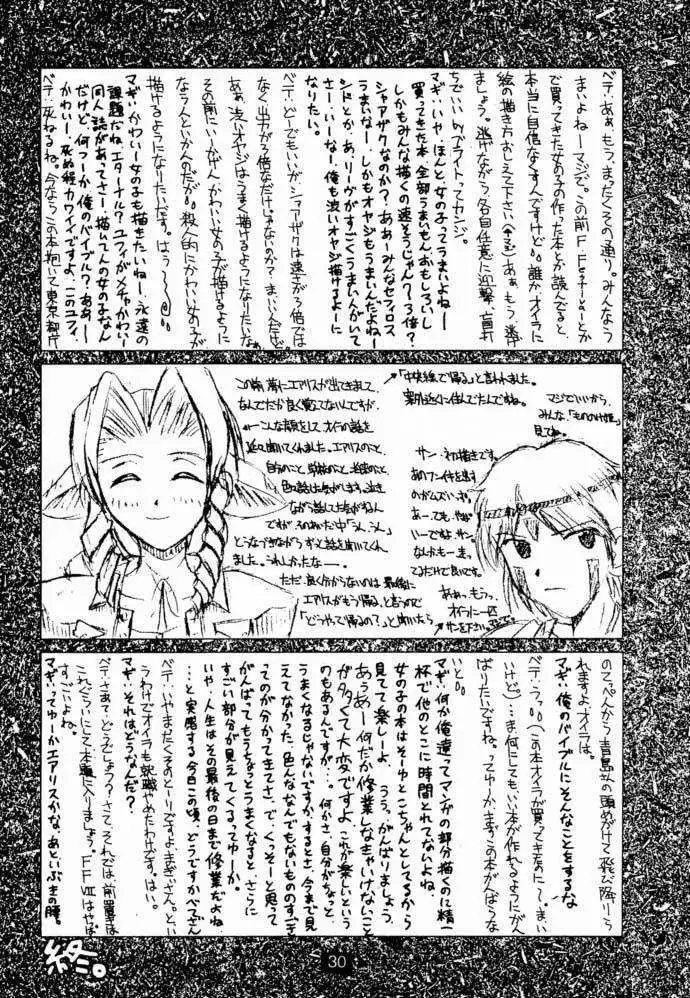 ベテ:あぁ、もう、まったくその通り。みんなう
まいよねーマジで。この前FFFestivalとか
で買ってきた女の子の作った本とか読んでると、
本当に自信なくすんですけど。誰かオイラに
絵の描き方おしえて下さい(金子)あぁ、もう、迷わ
ましょう。逃げながら各自任意に迎撃、盲打
ちでいいりアライトってカンジ。
マギ:いやーほんと女の子ってうまいよねー
買ってきた本、全部うまいもん。おもしろいし
しかもみんな描くの速そうじゃん?3倍?
シャアザクなのか?あぁーみんなセフィロス、
うまいなー。しかもオヤジもうまいんだよねー
シドとか。あ、リーヴがすごくうまい人がいて
さー。いーなー。俺も渋いオヤジ描けるよーに
なりたい。
ベテ:どーでもいいが、シャアザクは速さが3倍では
なく出力が3倍なだけじゃないのか?まぁいいんだけど。
あぁ、渋いオヤジはうまく描けるようになりたいなぁ。
その前にいーかげんかわいい女の子が描けるように
ならんといかんのだが。殺人的にかわいい女の子が
描けるようになりたいです。はぅ〜
マギ:かわいー女の子も描きたいねー。永遠の
課題だね。エターナル?ユフィがメチャかわいー
同人誌があってさー。描いてんの女の子なん
だけど、何つーか俺のバイブル?あぁー
かわいー。死ぬ程カワイイですよ、このユフィ。
ベテ:死ねるね。今ならこの本抱いて東京都庁
この前、夢にエアリスが出てきまして、
なんでだか良く覚えてないんですが、
←こんな顔をして、オイラの話を
延々聞いてくれました。エアリスのこと、
自分のこと、学校のこと、老後のこと、
色々話した気がします。泣き
ながら話してた気がするん
ですが、そのあいだ中「うん、うん」
とうなづきながら、ずっと話を聞いてくれ
ました。うれしかったなー。
ただ、良く分からないのは、最後に
エアリスがもう帰る、と言うので
「どうやって帰るの?」と聞いたら
「中央線で帰る」と言われました。
案外近くに住んでたんですね。
マジでいいから、
みんな、「もののけ姫」
見てね。
サン・初描きです。
あのフンイ件を出す
のがムズいッす。
あー、でも、やっぱ
いーですね、サン。
なんかもー、き
てるだけで良いです。
ああ、もう、
オイラに一匹
サンを下さい。
のてっぺんから青島 の頭めがけて飛び降りら
れますよ、オイラは。
マギ:俺のバイブルにそんなことをするな
ベテ:うっ。(この本オイラが買ってきたのに)まいい
けど)…ま、何にしてもいい本が作れるようにがん
ばりたいですね。ってゆーか、まずこの本がんばらな
いと。
マギ:何か俺達ってマンガの部分描くのに精一
杯で他のとこに時間とれてないよね。
女の子の本はそーゆとこちゃんとしてるから
見てて楽しーよ。うう、がんばりましょう。
あうあー何だか修業しなきゃいけないこと
が多くて大変ですよ。これが楽しいという
のもあるんですが…。何かさ、自分がちょっと
うまくなるじゃないですか。するとさ、今まで見
えてなかった、色んななんでもないものの「す」ご
ってのが分かってきてさ。で、くっそーと思って
がんばってもうちょっとうまくなると、さらに
すごい部分が見えてくるってゆーか。
いや、人生はその最後の日まで修業だよね
…と実感する今日この頃、どうですかべてさん
ベテ:いやまったくそのとーりですよ、まぎぃさん。とい
うワケでオイラも就職やめたわけです。はい。
マギ:それはどうなんだ?
ベテ:さぁて、どうでしょう?さて、それでは、前置きは
これぐらいにして本題に入りましょう。FFⅦはやっぱ
すごいよね。
マギ:ってゆーかエアリスかな、あといぶきの瞳。
終。
30